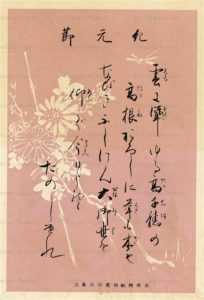 紀元節
雲に聳ゆる高千穂の
高根おろしに草も木も
なびきふしけん大御世を
仰ぐ今日こそ
たのしけれ